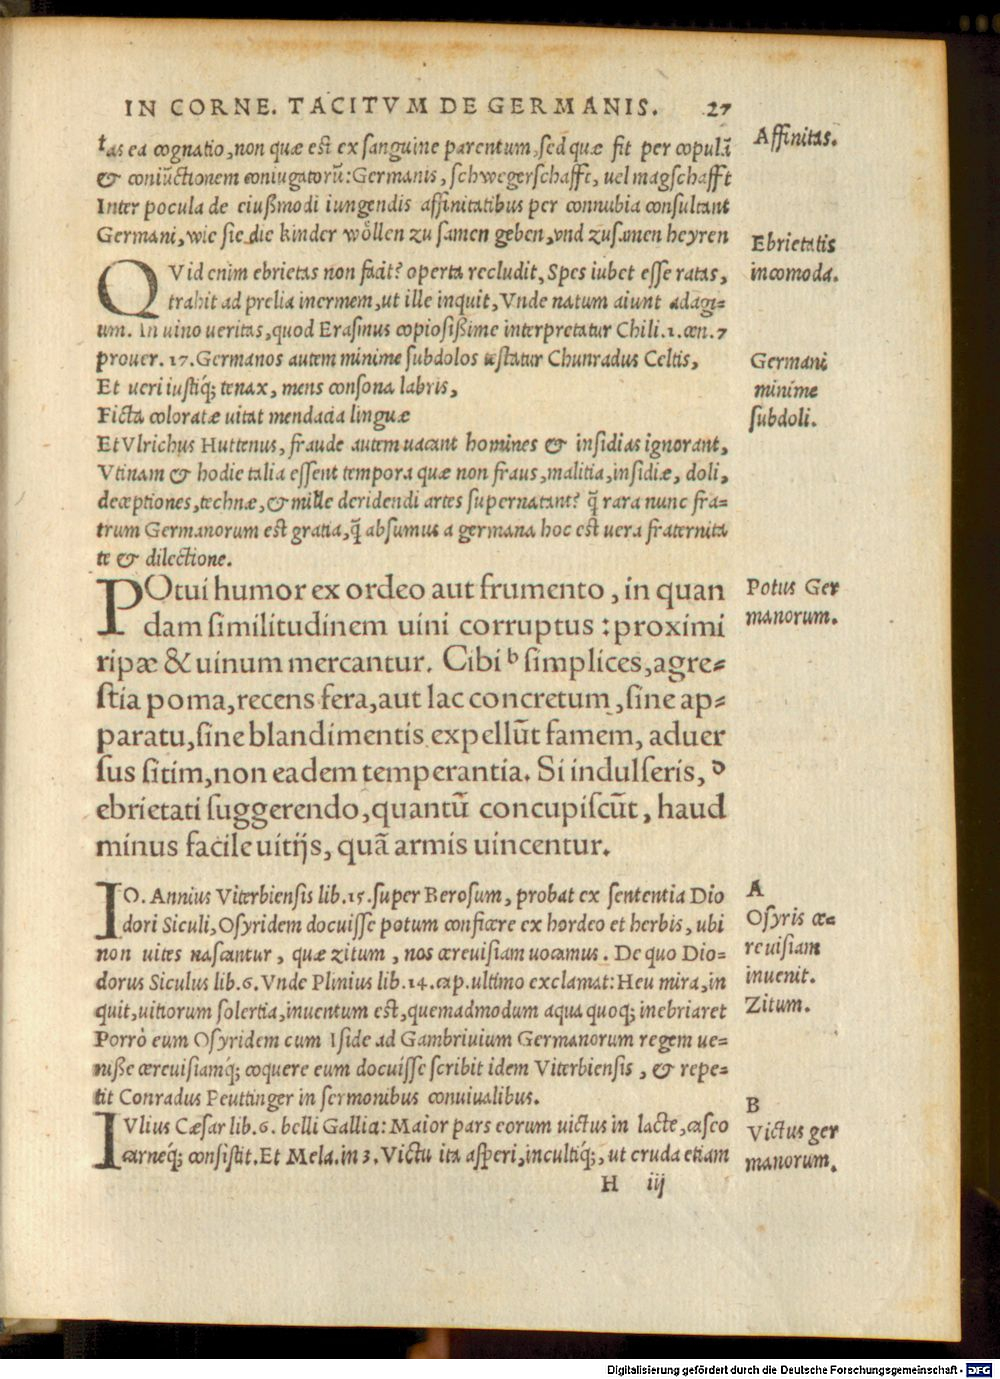 IN CORNE. TACITVM DE GERMANIS. 27
tas ea cognatio, non quæ est ex sanguine parentum, sed quæ fit per copulā
& coniūctionem coniugatorū: Germanis, schwegerschafft, uel magschafft
Inter pocula de eiußmodi iungendis affinitatibus per connubia consultant
Germani, wie sie die kinder wöllen zu samen geben, vnd zusamen heyren
Affinitas.
QVid enim ebrietas non facit? operta recludit, Spes iubet esse ratas,
trahit ad prelia inermem, ut ille inquit, Vnde natum aiunt adagi=
um. In uino ueritas, quod Erasmus copiosißime interpretatur Chili.1.cen.7
prouer. 17. Germanos autem minime subdolos testatur Chunradus Celtis,
Et ueri iustiq́; tenax, mens consona labris,
Ficta coloratæ uitat mendacia linguæ
Et Vlrichus Huttenus, fraude autem uacant homines & insidias ignorant,
Vtinam & hodie talia essent tempora quæ non fraus, malitia, insidiæ, doli,
deceptiones, technæ, & mille deridendi artes supernatant? q̄ rara nunc fra=
trum Germanorum est gratia, q̄ absumus a germana hoc est uera fraternita
te & dilectione.
Ebrietatis
incomoda.
Germani
minime
subdoli.
POtui humor ex ordeo aut frumento, in quan
dam similitudinem uini corruptus : proximi
ripæ & uinum mercantur. Cibi b simplices, agre=
stia poma, recens fera, aut lac concretum, sine ap=
paratu, sine blandimentis expellūt famem, aduer
sus sitim, non eadem temperantia. Si indulseris, D
ebrietati suggerendo, quantū concupiscūt, haud
minus facile uitijs, quā armis uincentur.
Potus Ger
manorum.
IO. Annius Viterbiensis lib.15. super Berosum, probat ex sententia Dio
dori Siculi, Osyridem docuisse potum conficere ex hordeo et herbis, ubi
non uites nascantur, quæ zitum, nos cereuisiam uocamus. De quo Dio=
dorus Siculus lib.6. Vnde Plinius lib.14.cap.ultimo exclamat: Heu mira, in
quit, uitiorum solertia, inuentum est, quemadmodum aqua quoq; inebriaret
Porrò eum Osyridem cum Iside ad Gambriuium Germanorum regem ue=
niße cereuisiamq́; coquere eum docuisse scribit idem Viterbiensis, & repe=
tit Conradus Peuttinger in sermonibus conuiualibus.
A
Osyris ce=
reuisiam
inuenit.
Zitum.
IVlius Cæsar lib.6. belli Gallia: Maior pars eorum uictus in lacte, caseo
carneq́; consistit. Et Mela.in 3. Victu ita asperi, incultiq́;, ut cruda etiam
B
Victus ger
manorum.
H iij
Digitalisierung gefördert durch die Deutsche Forschungsgemeinschaft - DFG